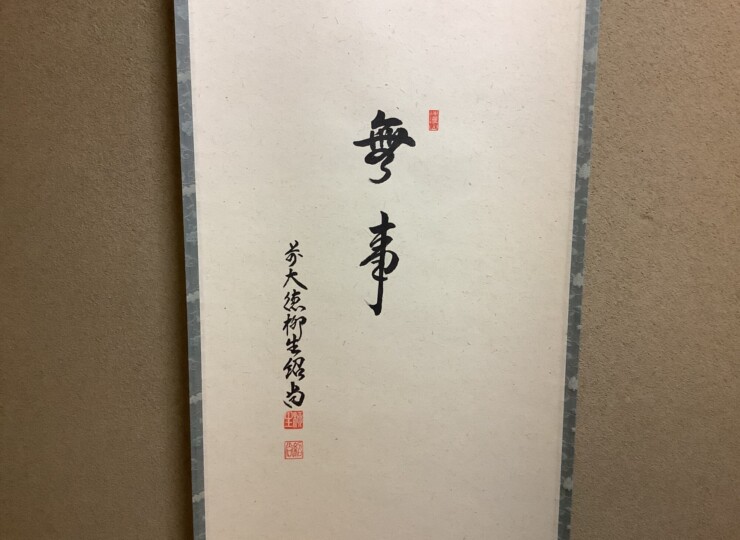 無事
前大徳柳生紹尚